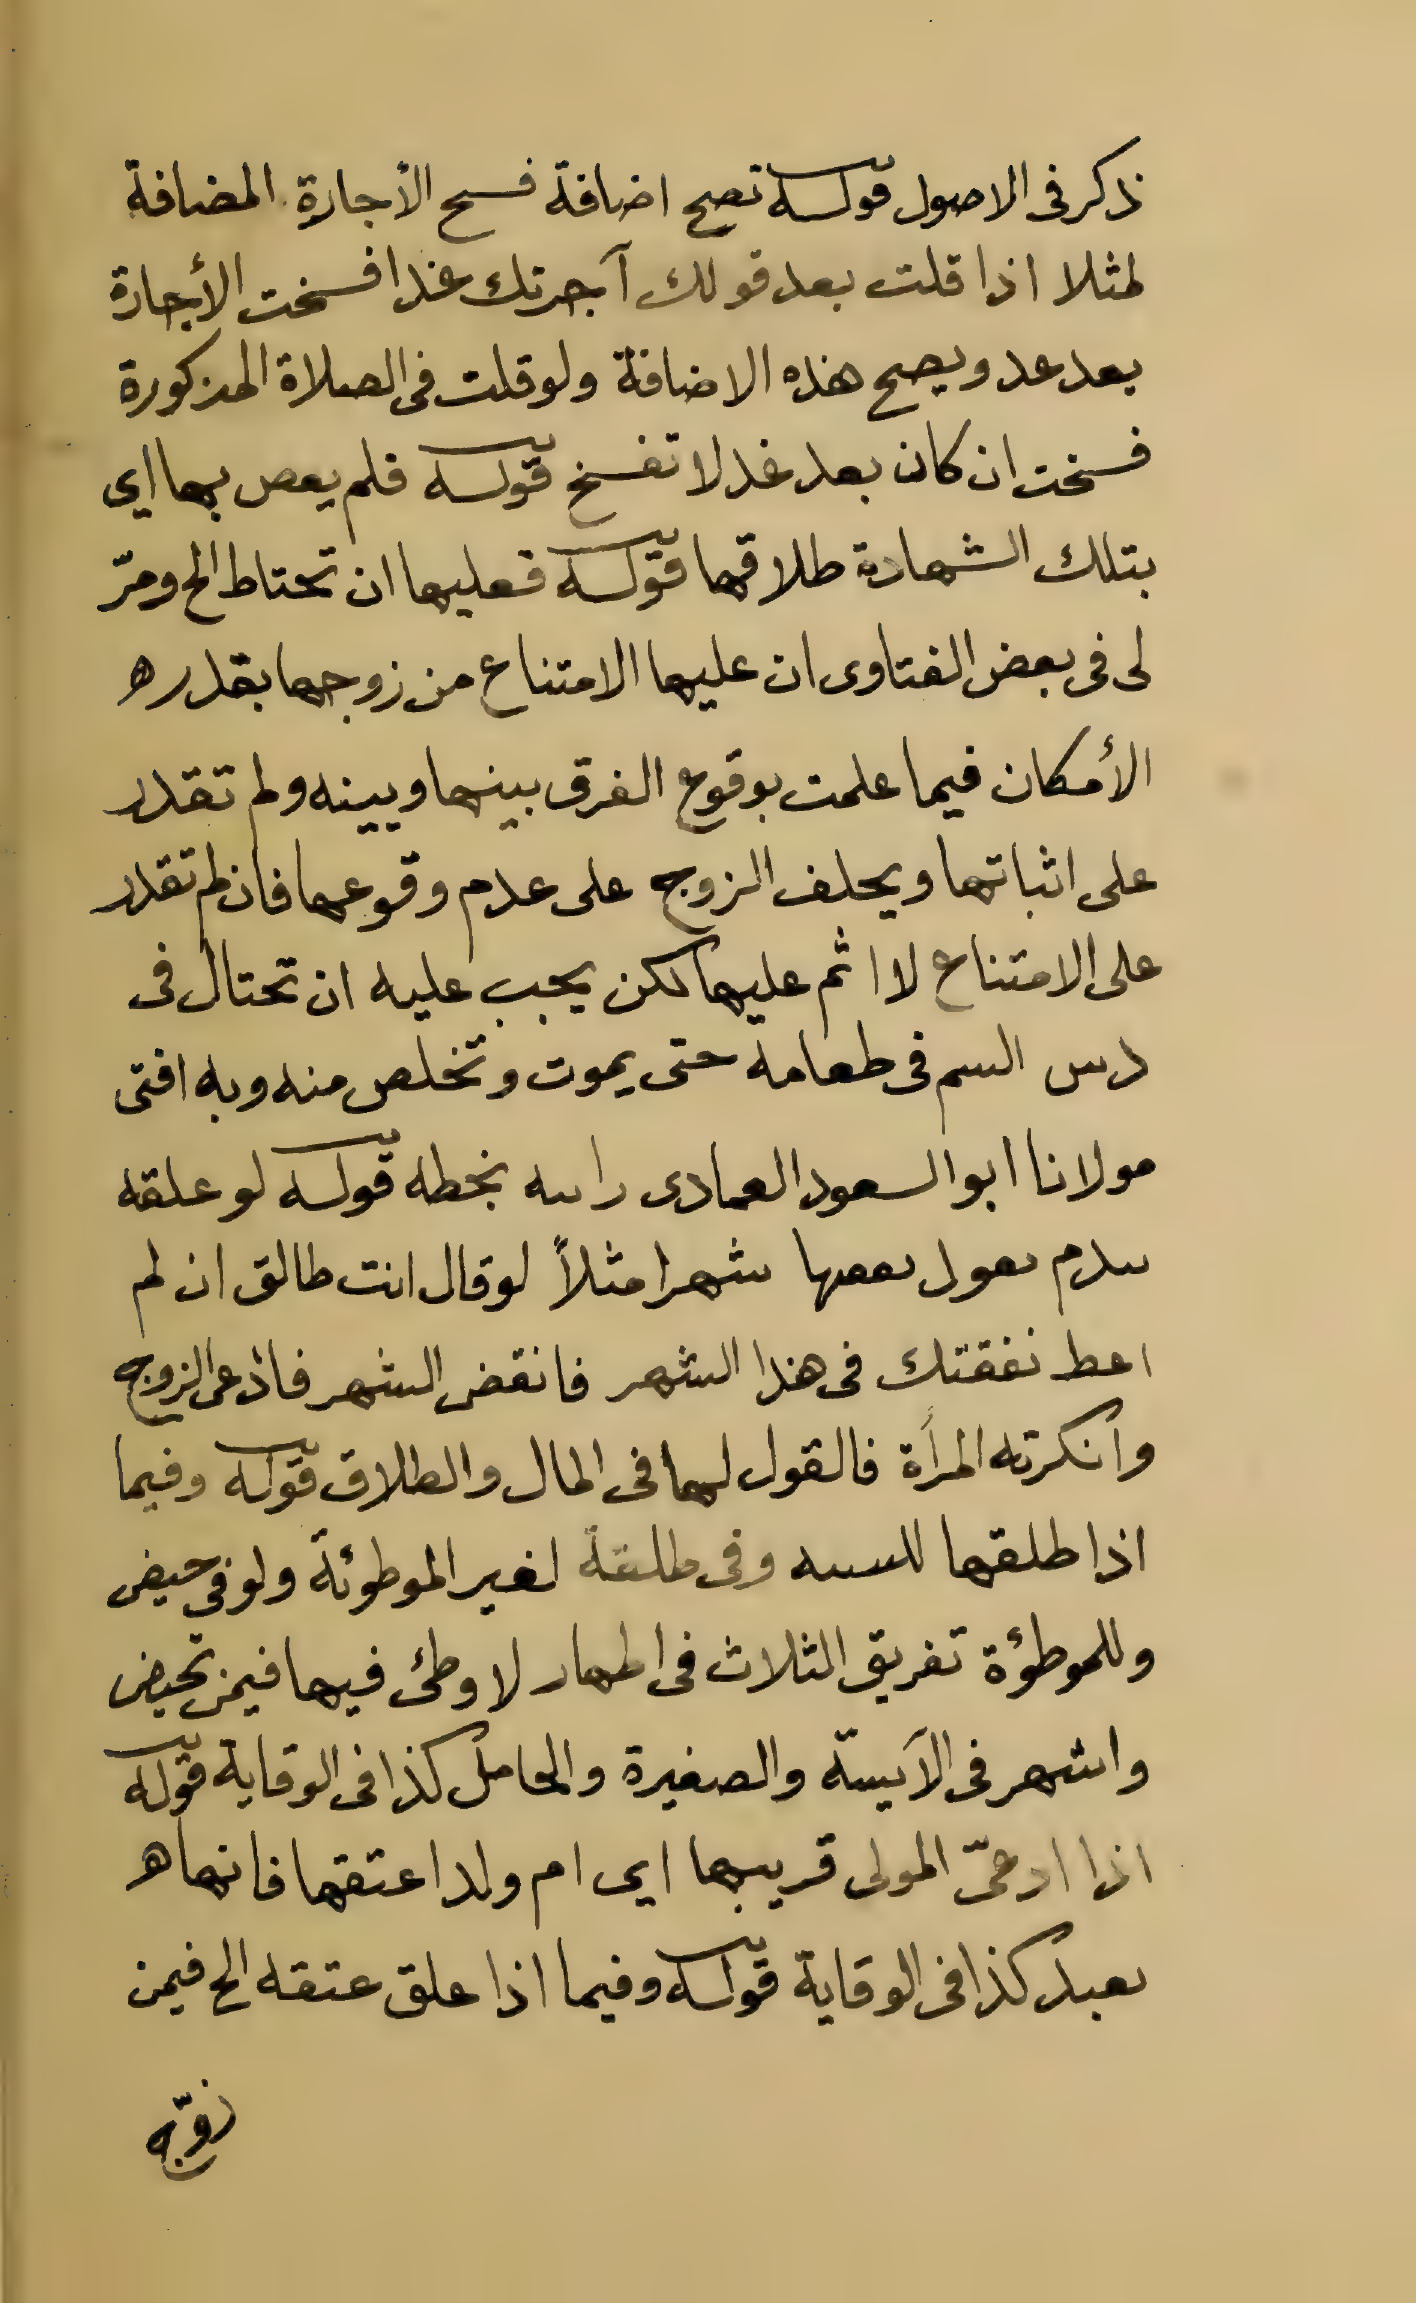 ذكر فى الاصول قوله تصح اضافة فسح الأجارة المضافة
لمثلا اذا قلت بعد قولك آجرتك غدا فسخت الأجارة
بعد عد ويصح هذه الاضافة ولو قلت فى الصلاة المذكورة
فسخت ان كان بعد غد لا تفسخ قوله فلم يعص بها اى
بتلك الشهادة طلاقها قوله فعليها ان تحتاط الخ ومرّ
لى فى بعض الفتاوى ان عليها الامتناع من زوجها بقدره
الأمكان فيما علمت بوقوع الفرق بينها وبينه ولم تقدر
على اثباتها ويحلف الزوج على عدم وقوعها فان لم تقدر
على الامتناع لا اثم عليها لكن يجب عليه ان تحتال فى
دس السم فى طعامه حتى يموت وتخلص منه وبه افتى
مولانا ابو السعود العمادى راىته بخطه قوله لو علقه
بعدم شهرا مثلاً لو قال انت طالق ان لم
اعط نفقتك فى هذا الشهر فانقض الشهر فادعى الزوج
وانكرته المرأة فالقول لها فى المال والطلاق قوله وفيما
اذا طلقها للسنه وفى طلقة لغير الموطوئة ولو فى حيض
وللموطؤة تفريق الثلاث فى اطهار لا وطئ فيها فيمن تحيض
واشهر فى الآيسة والصغيرة والحامل كذا فى الوقاية قوله
اذا ادعىّ المولى قريبها اى ام ولد اعتقها فانها ه
بعبد كذا فى الوقاية قوله وفيما اذا علق عتقه الخ فيمن
زوّجه